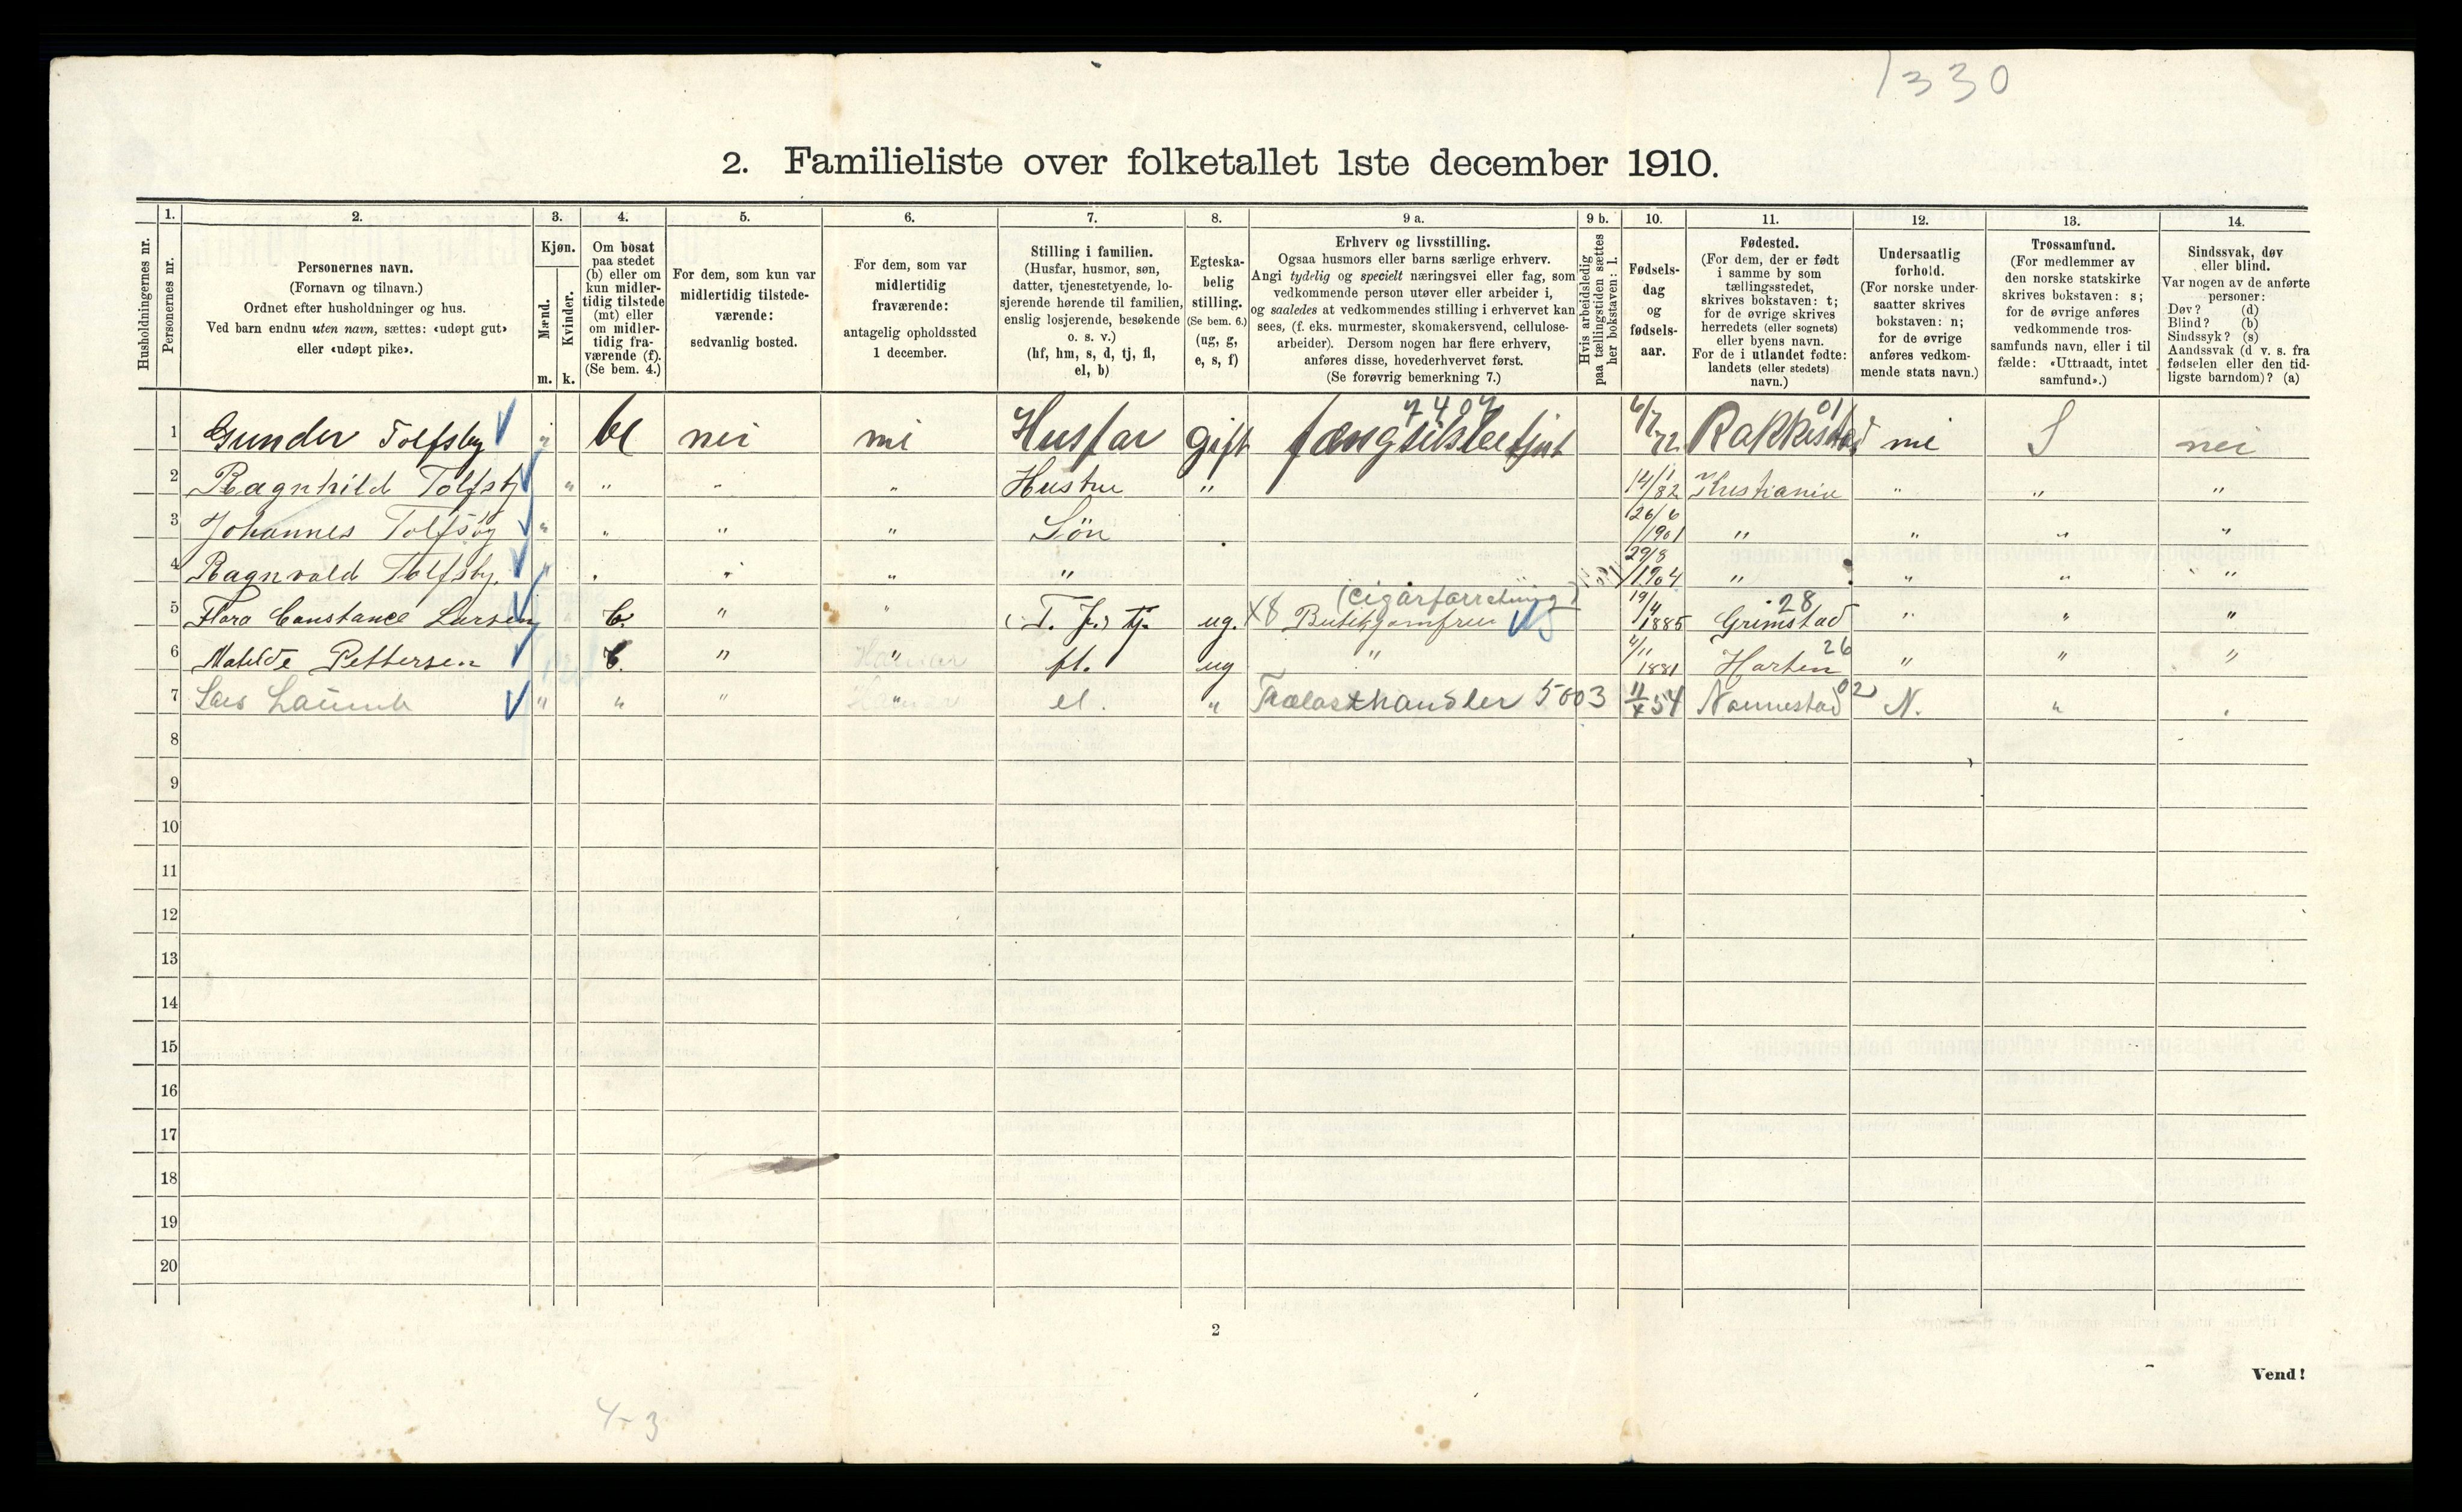 1330
2. Familieliste over folketallet 1ste december 1910.
Husholdningernes nr.
1. Personernes nr.
2. Personernes navn.
(Fornavn og tilnavn.)
Ordnet efter husholdninger og hus.
Ved barn endnu uten navn, sættes: «udøpt gut»
eller «udøpt pike».
3. Kjøn.
Mænd. Kvinder.
m. k.
4. Om bosat
paa stedet
(b) eller om
kun midler-
tidig tilstede
(mt) eller
om midler-
tidig fra-
værende (f).
(Se bem. 4.)
5. For dem, som kun var
midlertidig tilstede-
værende:
sedvanlig bosted.
6. For dem, som var
midlertidig
fraværende:
antagelig opholdssted
1 december.
7. Stilling i familien.
(Husfar, husmor, søn,
datter, tjenestetyende, lo-
sjerende hørende til familien,
enslig losjerende, besøkende
o. s. v.)
(hf, hm, s, d, tj, fl,
el, b)
8. Egteska-
belig
stilling.
(Se bem. 6.)
(ug, g,
e, s, f)
9 a. Erhverv og livsstilling.
Ogsaa husmors eller barns særlige erhverv.
Angi tydelig og specielt næringsvei eller fag, som
vedkommende person utøver eller arbeider i,
og saaledes at vedkommendes stilling i erhvervet kan
sees, (f. eks. murmester, skomakersvend, cellulose-
arbeider). Dersom nogen har flere erhverv,
anføres disse, hovederhvervet først.
(Se forøvrig bemerkning 7.)
9 b. Hvis arbeidsledig
paa tællingstiden sættes
her bokstaven: l.
10. Fødsels-
dag
og
fødsels-
aar.
11. Fødested.
(For dem, der er født
i samme by som
tællingsstedet,
skrives bokstaven: t;
for de øvrige skrives
herredets (eller sognets)
eller byens navn.
For de i utlandet fødte:
landets (eller stedets)
navn.)
12. Undersaatlig
forhold.
(For norske under-
saatter skrives
bokstaven: n;
for de øvrige
anføres vedkom-
mende stats navn.)
13. Trossamfund.
(For medlemmer av
den norske statskirke
skrives bokstaven: s;
for de øvrige anføres
vedkommende tros-
samfunds navn, eller i til
fælde: «Uttraadt, intet
samfund».)
14. Sindssvak, døv
eller blind.
Var nogen av de anførte
personer:
Døv? (d)
Blind? (b)
Sindssyk? (s)
Aandssvak (d v. s. fra
fødselen eller den tid-
ligste barndom)? (a)
1 Gunder Tolfsby " nei Husfar gift 7404 6/7 72 Rakkestad 01 S nei
2 Ragnhild Tolfsby " " " " Hustru " 14/1 82 Kristiania " " "
3 Johannes Tolfsby " " " " Søn 26/6 1901 " " " "
4 Ragnvald Tolfsby. " " " " " 29/8 1904 " " " "
5 Flora Constance Larsen " b. " " (T. J.) tj. ug. X8 Butikjomfru (cigarforretning) 19/4 1885 Grimstad 28 " " "
6 Matilde Pettersen b. " " fl. ug " 4/11 1881 26 " " "
7 " " " " el. " Trælasthandler 5003 11/X 54 Nannestad 02 N. " "
8
9
10
11
12
13
14
15
16
17
18
19
20
2
Vend!
4-3